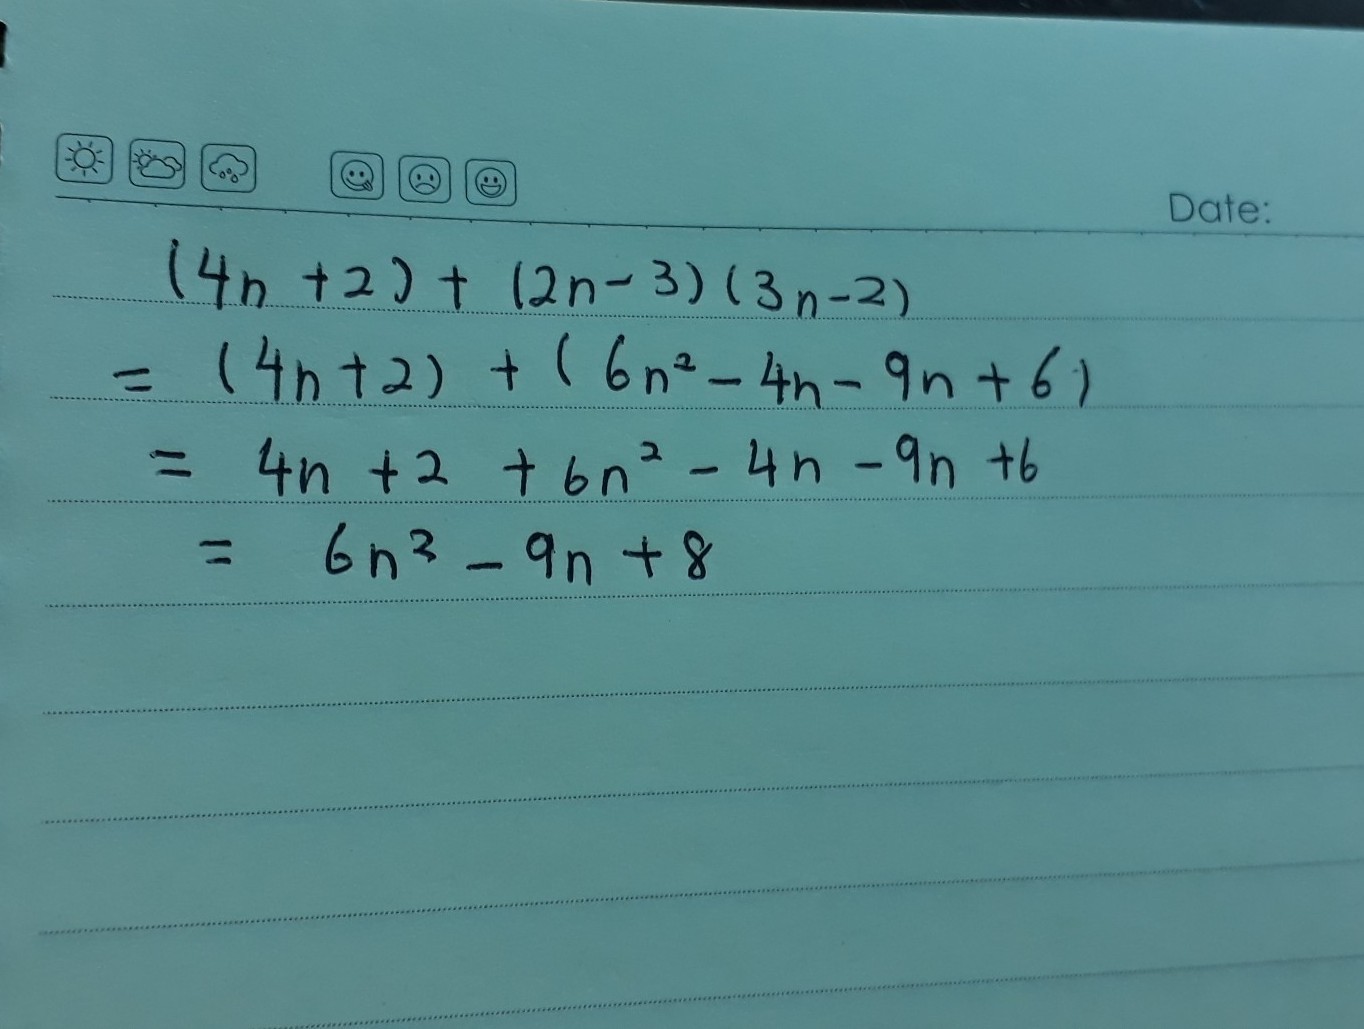 Date:
(4n +2) + (2n-3)(3n-2)
= (4n+2) + (6n² - 4n - 9n + 6)
= 4n +2 + 6n² - 4n - 9n +6
= 6n² - 9n + 8